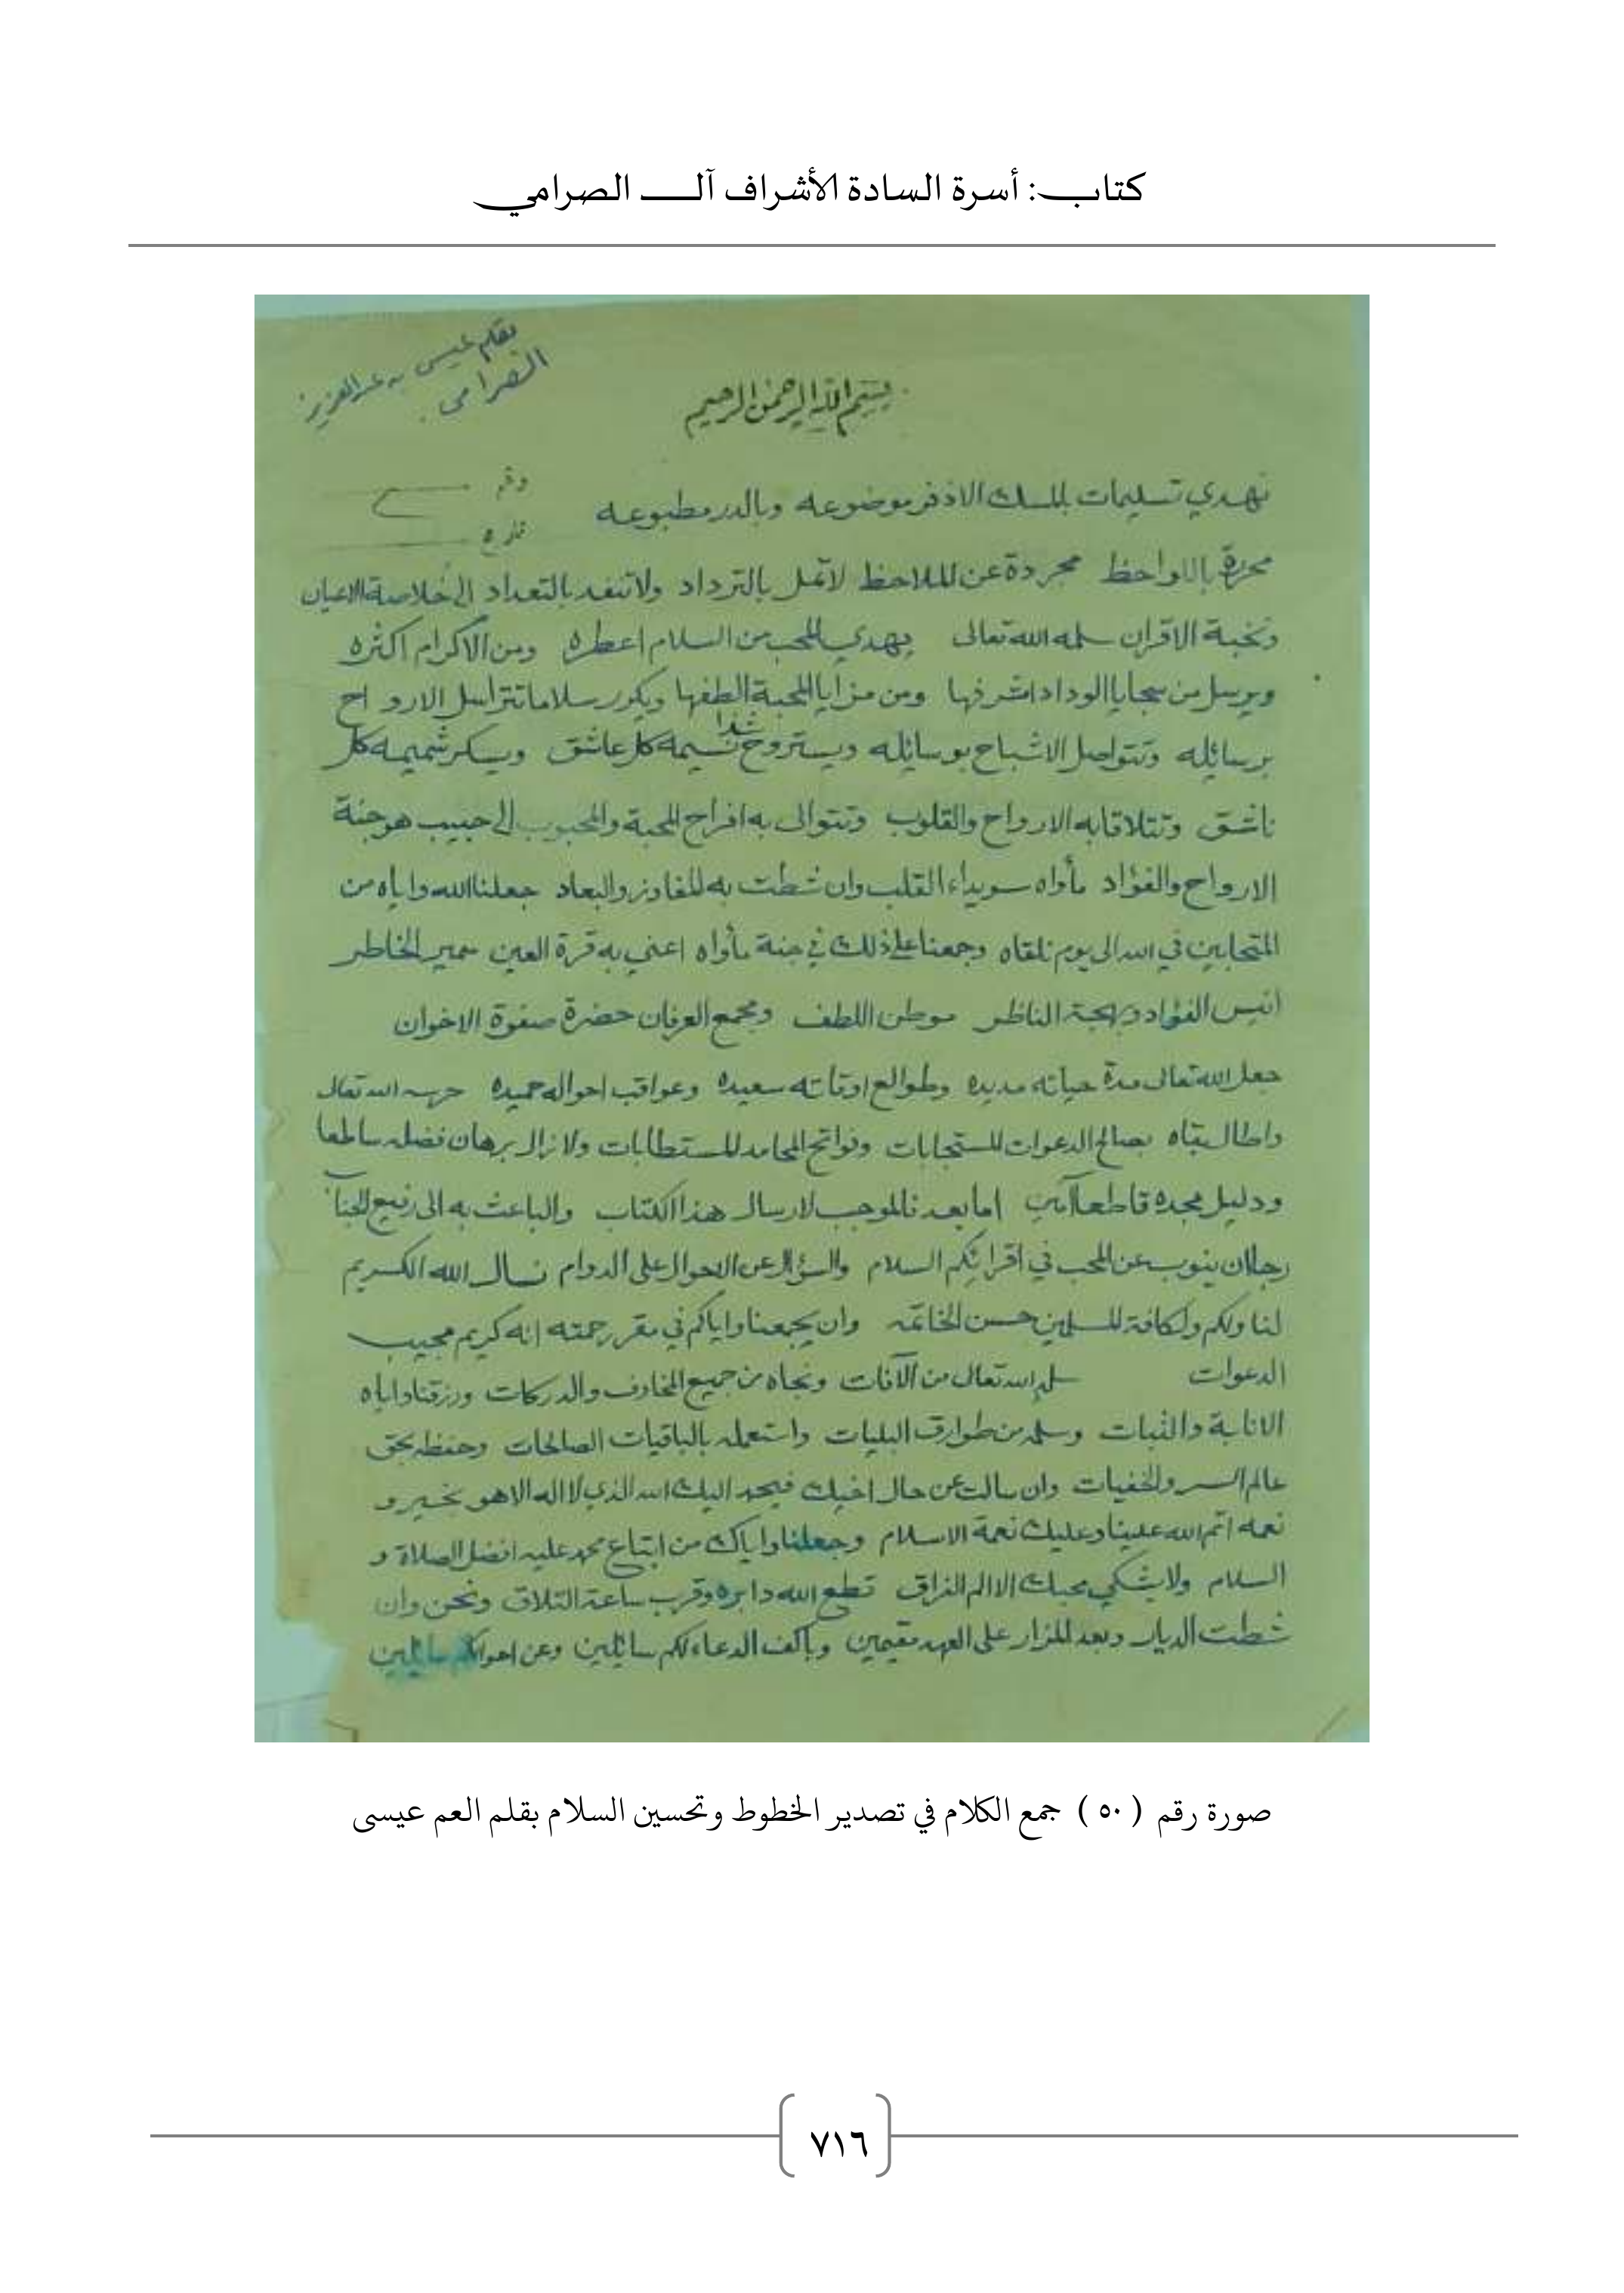 كتاب: أسرة السادة الأشراف آل الصرامي
بقلم عيسى بن عبدالعزيز
الصرامي
بسم الله الرحمن الرحيم
رقم
تاريخ
نهدي تسليمات بالمسك الاذفر موضوعه وبالدر مطبوعه
محررة باللواحظ مجردة عن الملاحظ لا تمل بالترداد ولا تنفد بالتعداد الى خلاصة الاعيان
ونخبة الاقران سلمه الله تعالى يهدي المحب من السلام اعطره ومن الاكرام اكثره
ويرسل من سجايا الوداد اشرفها ومن مزايا المحبة الطفها ويكرر سلاما تتراسل الارواح
برسائله وتتواصل الاشباح بوسائله ويستروح شذا نسيمه كل عاشق ويسكر شميمه كل
ناشق وتتلاقا به الارواح والقلوب وتتوالى به افراح المحبة والمحبوب الى حبيب هو جنة
الارواح والفؤاد مأواه سويداء القلب وان شطت به المفاوز والبعاد جعلنا الله واياه من
المتحابين في الله الى يوم نلقاه وجمعنا على ذلك في جنة مأواه اعني به قرة العين سمير الخاطر
انيس الفؤاد وبهجة الناظر موطن اللطف ومجمع العرفان حضرة صفوة الاخوان
جعل الله تعالى مدة حياته مديده وطوالع اوقاته سعيده وعواقب احواله حميده حرسه الله تعالى
واطال بقاه بصالح الدعوات المستجابات وفواتح المحامد المستطابات ولا زال برهان فضله ساطعا
ودليل مجده قاطعا آمين اما بعد فالموجب لارسال هذا الكتاب والباعث به الى رفيع الجناب
رجا ان ينوب عن المحب في اقرائكم السلام والسؤال عن الاحوال على الدوام نسال الله الكريم
لنا ولكم ولكافة المسلمين حسن الخاتمه وان يجمعنا واياكم في مقر رحمته انه كريم مجيب
الدعوات سلمه الله تعالى من الآفات ونجاه من جميع المخاوف والدركات ورزقنا واياه
الانابة والثبات وسلمه من طوارق البليات واستعمله بالباقيات الصالحات وحفظه بحق
عالم السر والخفيات وان سالت عن حال اخيك فيحمد اليك الله الذي لا اله الا هو بخير و
نعمه اتم الله علينا وعليك نعمة الاسلام وجعلنا واياك من ابتاع محمد عليه افضل الصلاة و
السلام ولا يشكي محبك الا الم الفراق قطع الله دابره وقرب ساعة التلاق ونحن وان
شطت الديار وبعد المزار على العهد مقيمين وباكف الدعاء لكم سائلين وعن احوالكم سائلين
صورة رقم ( ٥٠ ) جمع الكلام في تصدير الخطوط وتحسين السلام بقلم العم عيسى
٧١٦